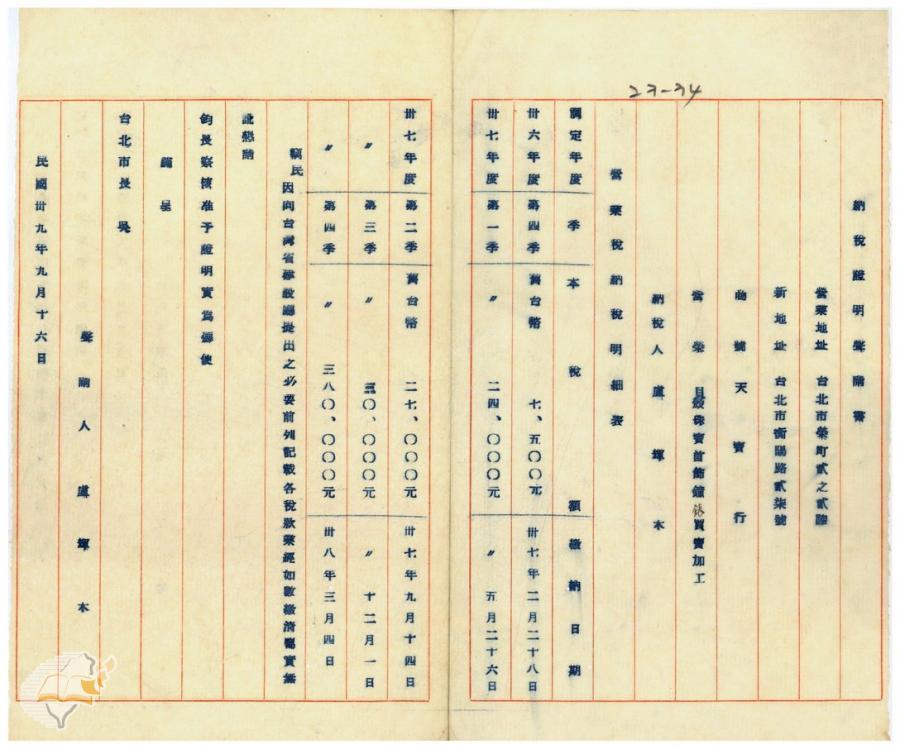 23-24
納稅證明聲請書
營業地址 台北市榮町貳之貳陸
新地址 台北市衡陽路貳柒號
商號 天寶行
營業 貝殼珠寶首飾鐘錶買賣加工
納稅人 盧燿本
營業稅納稅明細表
調定年度 季 本稅額 繳納日期
卅六年度 第四季 舊台幣 七、五〇〇元 卅七年二月二十八日
卅七年度 第一季 〃 二四、〇〇〇元 〃 五月二十六日
卅七年度 第二季 舊台幣 二七、〇〇〇元 卅七年九月十四日
〃 第三季 〃 三〇、〇〇〇元 〃 十二月一日
〃 第四季 〃 三八〇、〇〇〇元 卅八年三月四日
竊民因向台灣省建設廳提出之必要前列記載各稅款業經如數繳清屬實無
訛懇請
鈞長察核准予證明實為德便
謹呈
台北市長 吳
聲請人 盧燿本
民國卅九年九月十六日